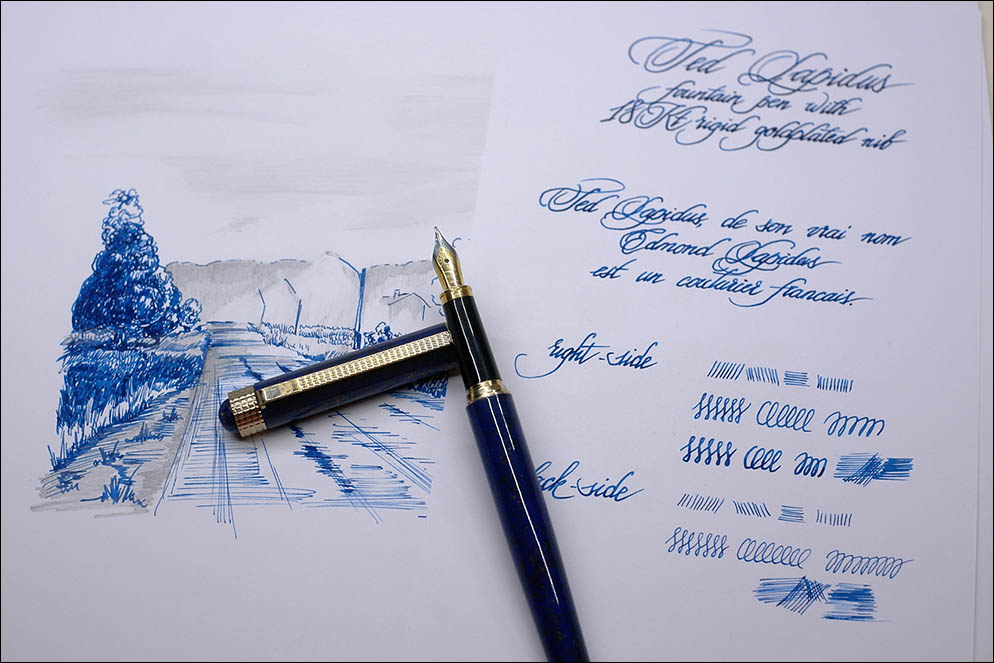 Ted Lapidus
fountain pen with
18Kt rigid goldplated nib
Ted Lapidus, de son vrai nom
Edmond Lapidus
est un couturier francais.
right-side
ack-side